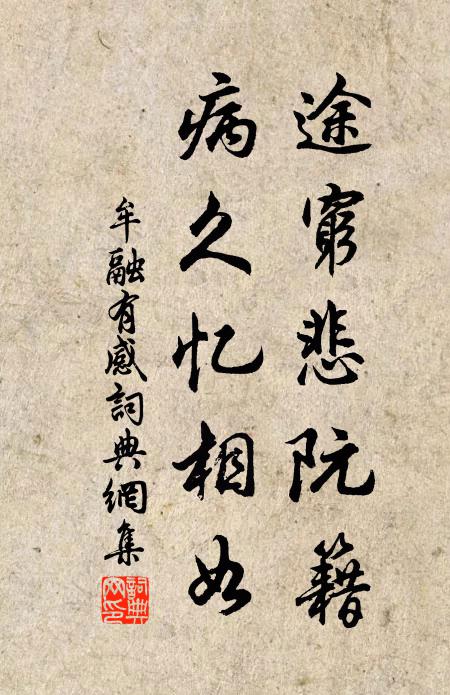 途窮悲阮籍
病久忆相如
牟融有感詞典網集
詞典网印